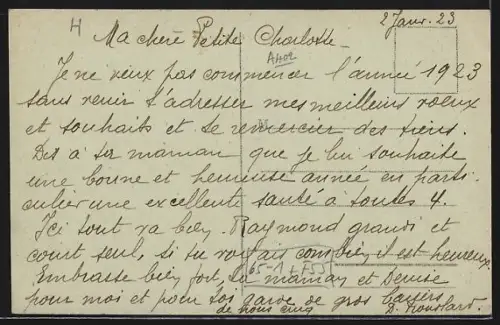 2 Janv. 23
H
Ma chère Petite Charlotte
A402
Je ne veux pas commencer l'année 1923
sans venir t'adresser mes meilleurs vœux
et souhaits et te remercier des tiens.
Dis à ta maman que je lui souhaite
une bonne et heureuse année en parti-
culier une excellente santé à toutes 4.
Ici tout va bien. Raymond grandi et
court seul, si tu voyais combien il est heureux.
Embrasse bien fort ta maman et Denise
pour moi et pour toi garde de gros baisers
de nous cinq